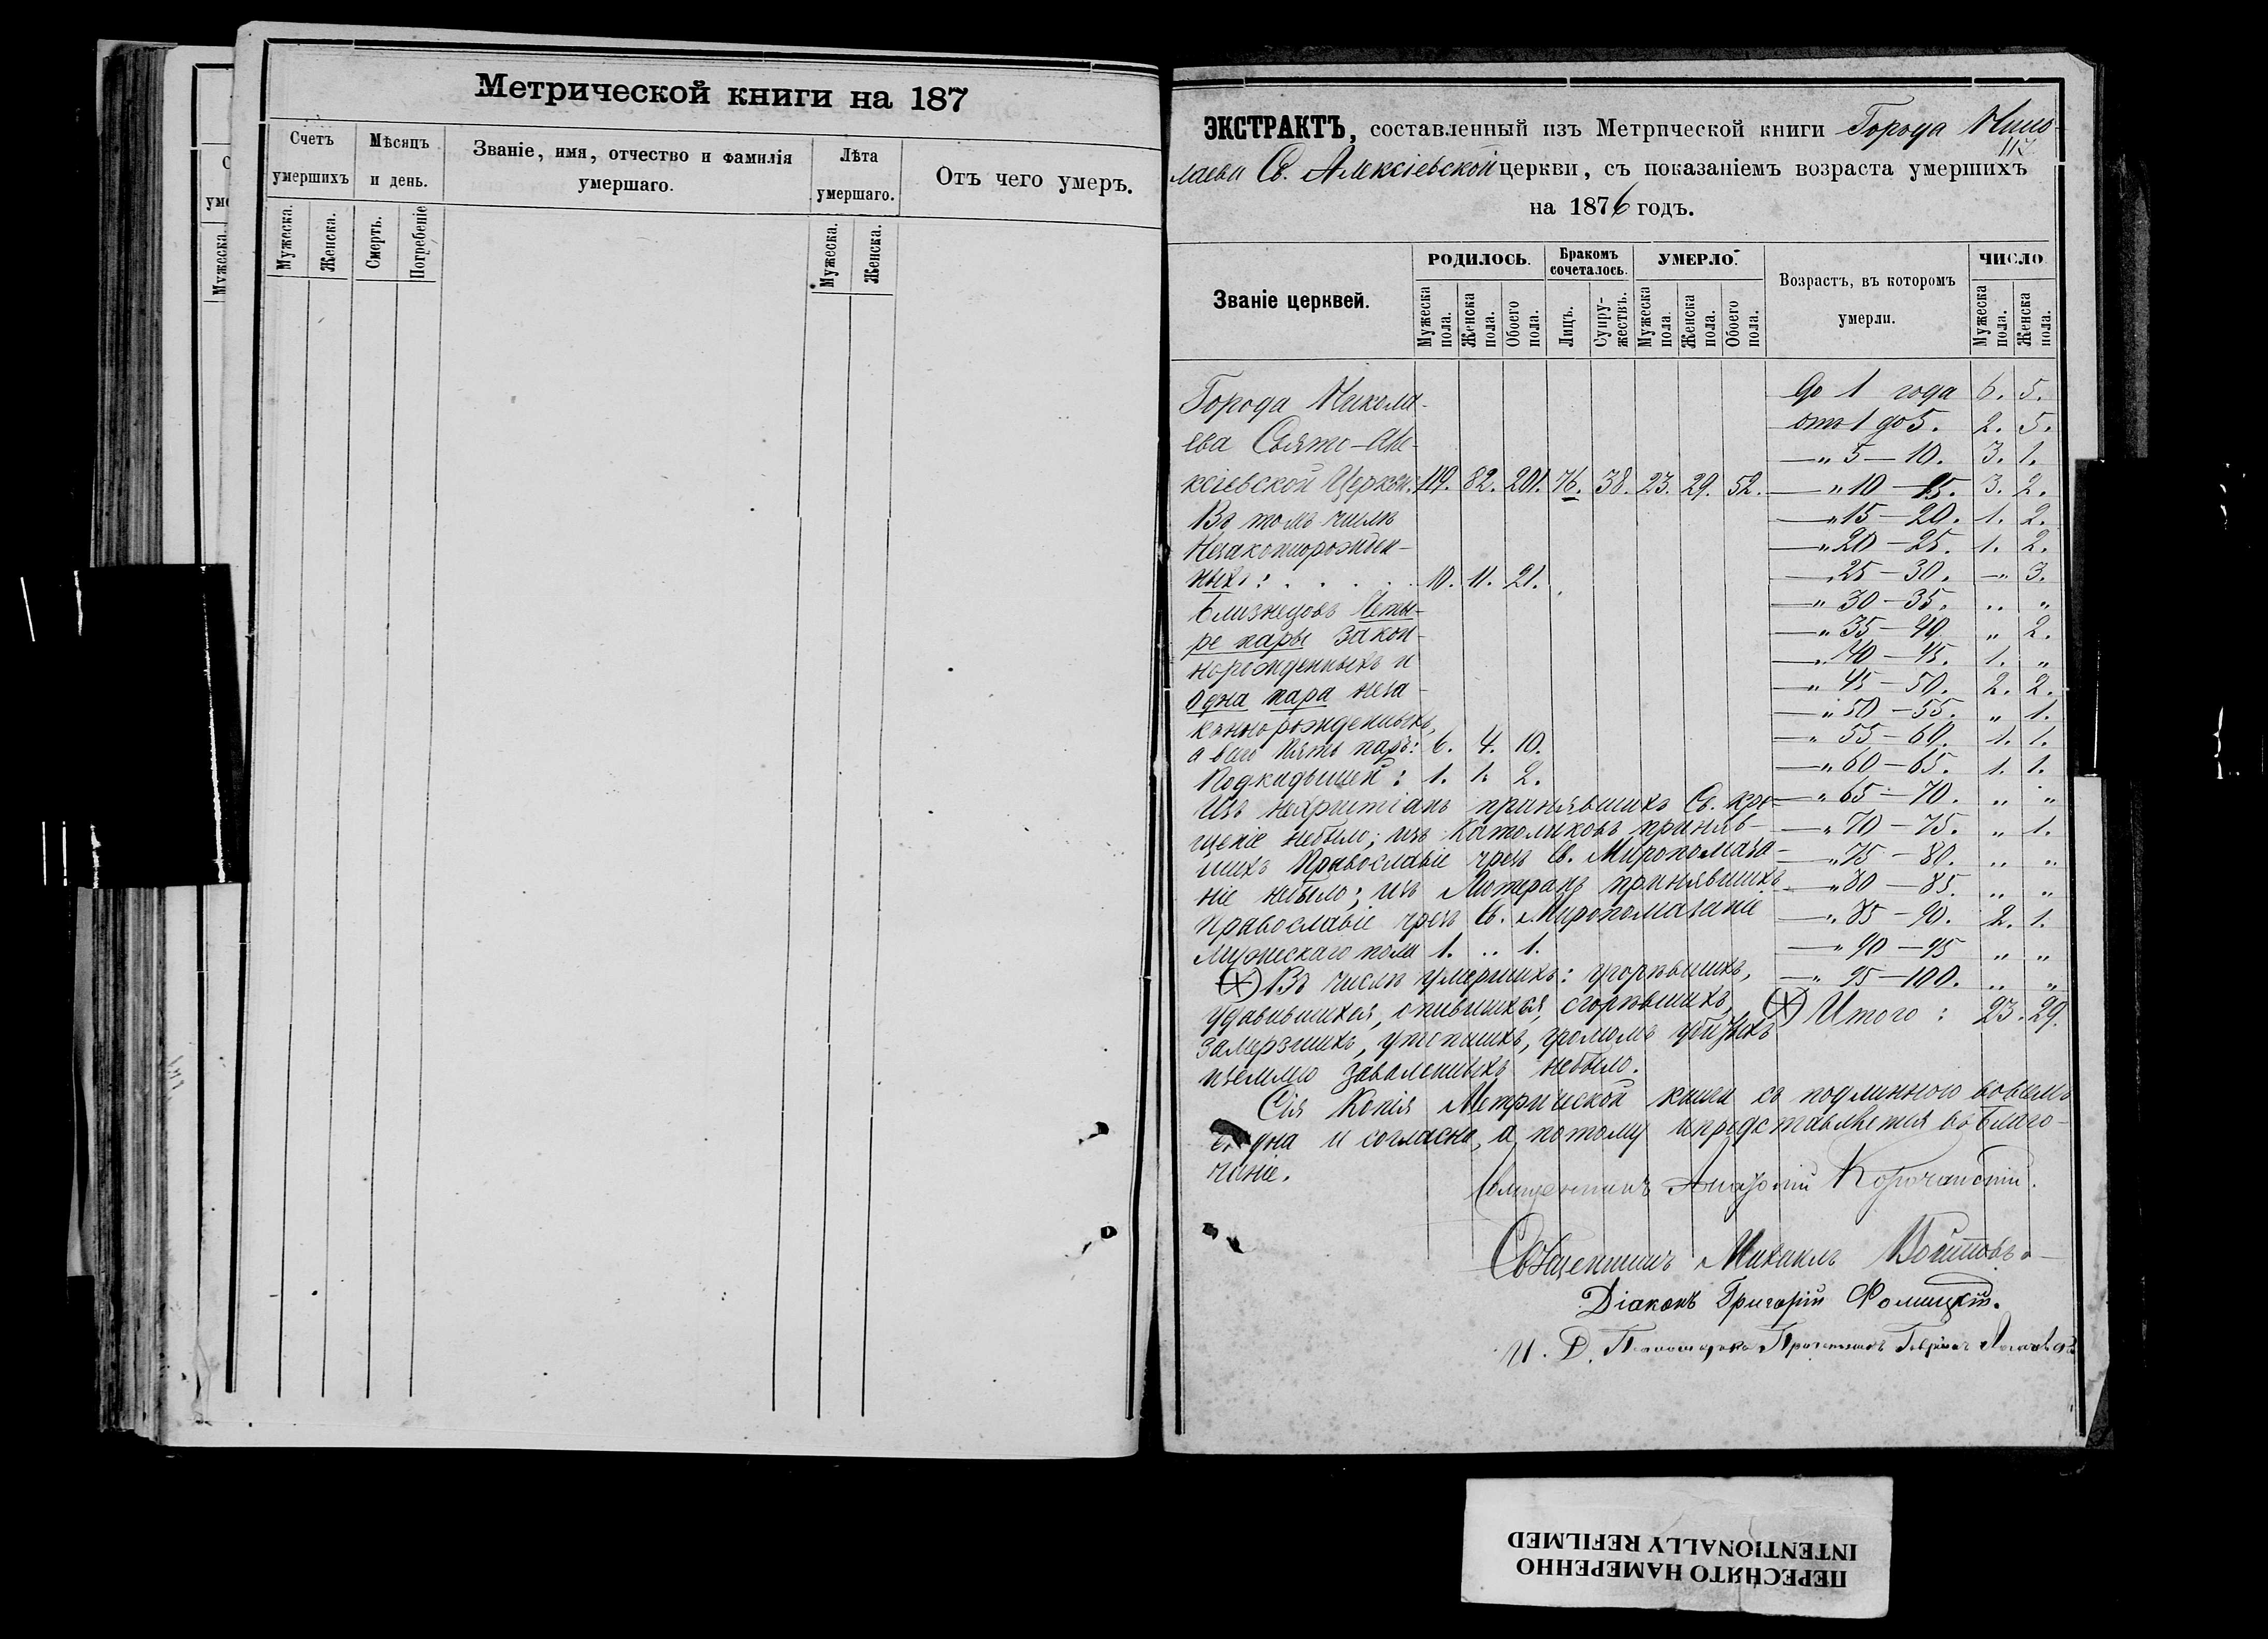 Метрической книги на 187
Счетъ умершихъ
Мѣсяцъ и день.
Званіе, имя, отчество и фамилія умершаго.
Лѣта умершаго.
Отъ чего умеръ.
Мужеска. Женска. Смерть. Погребеніе Мужеска. Женска.
ЭКСТРАКТЪ, составленный изъ Метрической книги Города Нико-
117
лаева Св. Алексіевской церкви, съ показаніемъ возраста умершихъ
на 1876 годъ.
Званіе церквей.
РОДИЛОСЬ. Бракомъ сочеталось. УМЕРЛО.
Возрастъ, въ которомъ умерли.
ЧИСЛО
Мужеска пола. Женска пола. Обоего пола. Лицъ. Супружествъ. Мужеска пола. Женска пола. Обоего пола. Мужеска пола. Женска пола.
Города Никола-
ева Свято-Але-
ксіевской Церкви. 119. 82. 201. 76. 38. 23. 29. 52.
Въ томъ числѣ
Незаконнорожден-
ныхъ: . . . . . 10. 11. 21.
Близнецовъ Четы-
ре пары закон-
норожденныхъ и
одна пара неза-
коннорожденныхъ,
а всего пять паръ: 6. 4. 10.
Подкидышей: 1. 1. 2.
Изъ нехристіанъ принявшихъ Св. кре-
щеніе небыло; изъ католиковъ приняв-
шихъ Православіе чрезъ Св. Миропомаза-
ніе небыло; изъ Лютеранъ принявшихъ
Православіе чрезъ Св. Миропомазаніе
Мужескаго пола 1. .. 1.
(+) Въ числѣ умершихъ: угорѣвшихъ,
удавившихся, опившихся, сгорѣвшихъ,
замерзшихъ, утопшихъ, громомъ убитыхъ
и землею заваленныхъ небыло.
до 1 года 6. 5.
отъ 1 до 5. 2. 5.
—„ 5 — 10. 3. 1.
—„ 10 — 15. 3. 2.
—„ 15 — 20. 1. 2.
—„ 20 — 25. 1. 2.
—„ 25 — 30. —„ 3.
—„ 30 — 35. „ „
—„ 35 — 40 „ 2.
—„ 40 — 45. 1. „
—„ 45 — 50. 2. 2.
—„ 50 — 55. „ 1.
—„ 55 — 60. 1. 1.
—„ 60 — 65. 1. 1.
—„ 65 — 70. „ „
—„ 70 — 75. „ 1.
—„ 75 — 80. „ „
—„ 80 — 85. „ „
—„ 85 — 90. 2. 1.
—„ 90 — 95 „ „
—„ 95 — 100. „ „
(+) Итого: 23. 29.
Сія Копія Метрической книги съ подлинною вовсемъ
сходна и согласна, а потому и представляется въ благо-
чиніе.
Священникъ Анатолій Корочанскій.
Священникъ Михаилъ
Діаконъ Григорій Фомицкій.
И. Д. Псаломщика Гавріилъ
ПЕРЕСНЯТО НАМЕРЕННО
INTENTIONALLY REFILMED